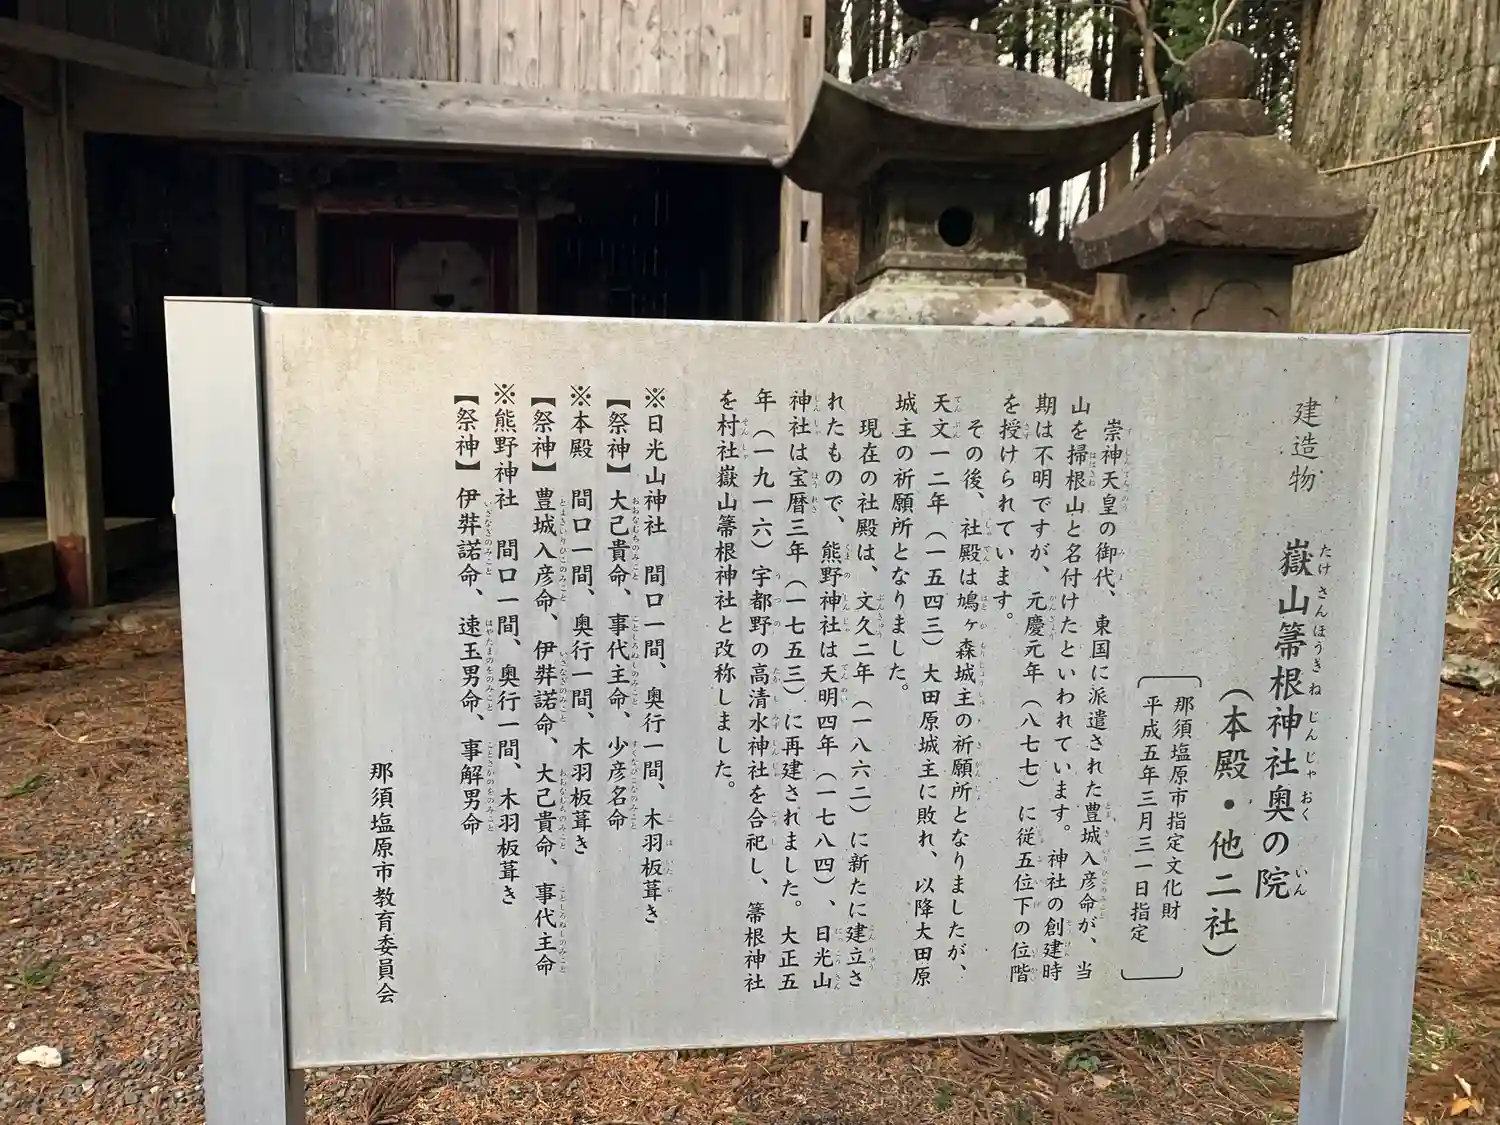 建造物　嶽山箒根神社奥の院
（本殿・他二社）
那須塩原市指定文化財
平成五年三月三一日指定
崇神天皇の御代、東国に派遣された豊城入彦命が、当
山を掃根山と名付けたといわれています。神社の創建時
期は不明ですが、元慶元年（八七七）に従五位下の位階
を授けられています。
その後、社殿は鳩ヶ森城主の祈願所となりましたが、
天文一二年（一五四三）大田原城主に敗れ、以降大田原
城主の祈願所となりました。
現在の社殿は、文久二年（一八六二）に新たに建立さ
れたもので、熊野神社は天明四年（一七八四）、日光山
神社は宝暦三年（一七五三）に再建されました。大正五
年（一九一六）宇都野の高清水神社を合祀し、箒根神社
を村社嶽山箒根神社と改称しました。
※日光山神社　間口一間、奥行一間、木羽板葺き
【祭神】大己貴命、事代主命、少彦名命
※本殿　間口一間、奥行一間、木羽板葺き
【祭神】豊城入彦命、伊弉諾命、大己貴命、事代主命
※熊野神社　間口一間、奥行一間、木羽板葺き
【祭神】伊弉諾命、速玉男命、事解男命
那須塩原市教育委員会